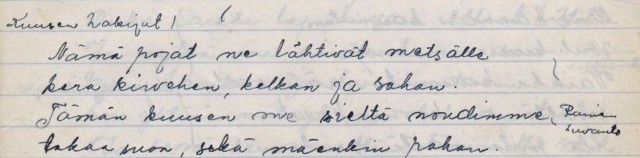 Kuusen hakijat!
Nämä pojat ne lähtivät metsälle
kera kirvehen, kelkan ja sahan.
Tämän kuusen me sieltä noudimme,
takaa suon, sekä mäenkin pahan.
Suvanto